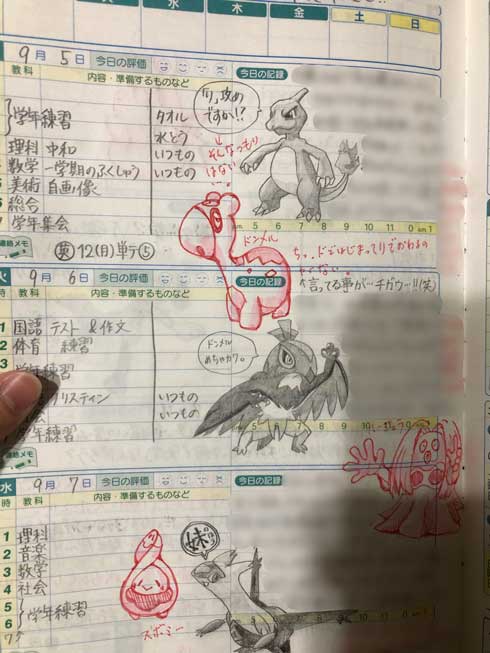 火 水 木 金 土 日
9月5日 今日の評価 今日の記録
教科 内容・準備するものなど
学年練習 タオル
水とう
理科 中和 いつもの
数学 一学期のふくしゅう いつもの
美術 自画像
総合
学年集会
連絡メモ
英 12(月)単テ⑤
「り」攻め
ですか!?
そんなつもり
はない
ドンメル
言ってる事が…チガウー!!(笑)
火 9月6日 今日の評価 今日の記録
時 教科 内容・準備するものなど
1 国語 テスト &作文
2 体育 練習
3 学年練習
リスティン いつもの
いつもの
学年練習
連絡メモ
ドンメル
めちゃカワ。
5 6 7 8 9 10 11 0 am1
水 9月7日 今日の評価 今日の記録
時 教科 内容・準備するものなど
1 理科
2 音楽
3 数学
4 社会
5
6 学年練習
ズボミー